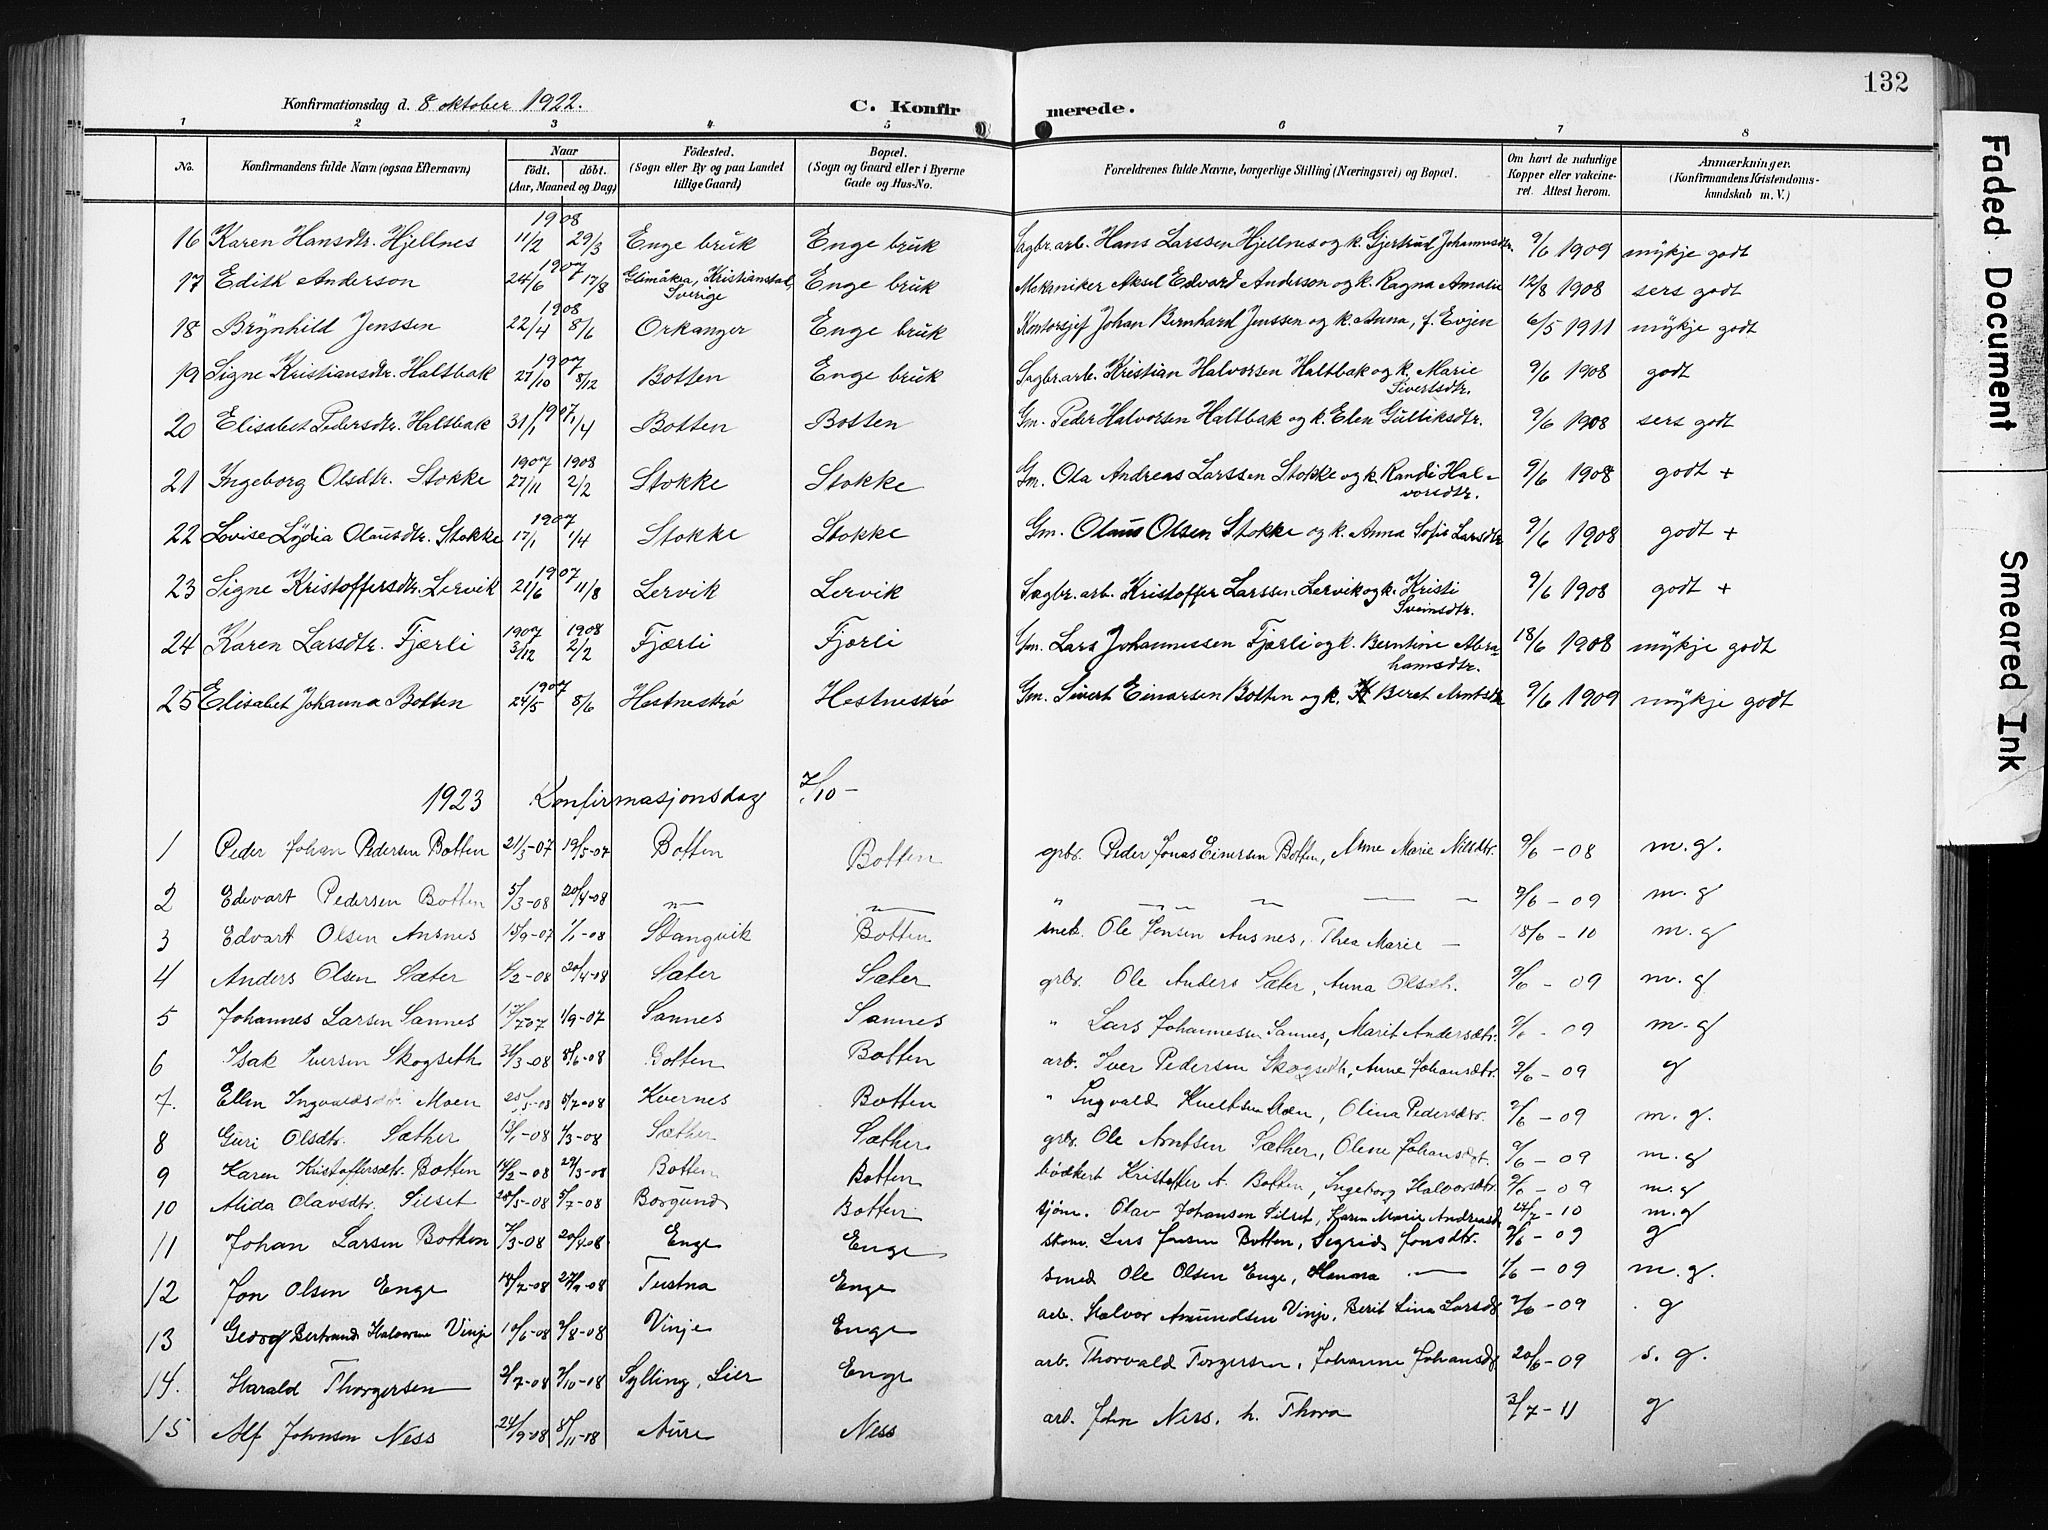 132
Konfirmationsdag d. 8 oktober 1922.
C. Konfir merede.
1 2 3 4 5 6 7 8
No. Konfirmandens fulde Navn (ogsaa Efternavn) Naar født. døbt. (Aar, Maaned og Dag) Fødested. (Sogn eller By og paa Landet tillige Gaard) Bopæl. (Sogn og Gaard eller i Byerne Gade og Hus-No. Forældrenes fulde Navne, borgerlige Stilling (Næringsvei) og Bopæl. Om havt de naturlige Kopper eller vaccineret. Attest herom. Anmærkninger. (Konfirmandens Kristendomskundskab m. V.)
16 Karen Hansdtr. Hjellnes 1908 11/2 29/3 Enge bruk Enge bruk Sagbr.arb. Hans Larssen Hjellnes og k. Gjertrud Johannesdtr. 9/6 1909 mykje godt
17 Edith Anderson 1907 24/6 17/8 Glimåkra, Kristianstad, Sverige Enge bruk Mekaniker Aksel Edvard Anderson og k. Ragna Amalie 12/8 1908 sers godt
18 Brynhild Jenssen 1908 22/4 8/6 Orkanger Enge bruk Kontorsjef Johan Bernhard Jenssen og k. Anna, f. Evjen 6/5 1911 mykje godt
19 Signe Kristiansdtr. Haltbak 1907 27/10 8/12 Botten Enge bruk Sagbr.arb. Kristian Halvorsen Haltbak og k. Marie Sivertsdtr. 9/6 1908 godt
20 Elisabet Pedersdtr. Haltbak 1907 31/1 1/4 Botten Botten Gm. Peder Halvorsen Haltbak og k. Elen Gulliksdtr. 9/6 1908 sers godt
21 Ingeborg Olsdtr. Stokke 1907 27/11 1908 2/2 Stokke Stokke Gm. Ola Andreas Larssen Stokke og k. Randi Halvorsdtr. 9/6 1908 godt +
22 Lovise Lydia Olausdtr. Stokke 1907 17/1 1/4 Stokke Stokke Gm. Olaus Olsen Stokke og k. Anna Sofie Larsdtr 9/6 1908 godt +
23 Signe Kristoffersdtr. Lervik 1907 21/6 11/8 Lervik Lervik Sagbr. arb. Kristoffer Larssen Lervik og k. Kristi Sveinsdtr. 9/6 1908 godt +
24 Karen Larsdtr. Fjærli 1907 3/12 1908 2/2 Fjærli Fjærli Gm. Lars Johannessen Fjærli og k. Berntine Abrahamsdtr. 18/6 1908 mykje godt
25 Elisabet Johanna Botten 1907 24/5 8/6 Hestnestrø Hestnestrø Gm. Sivert Einarsen Botten og k. Beret Arntsdtr 9/6 1909 mykje godt
1923 Konfirmasjonsdag 7/10 -
1 Peder Johan Pedersen Botten 21/3-07 19/5-07 Botten Botten grbr. Peder Jonas Einersen Botten, Anne Marie Nilsdtr. 9/6 - 08 m. g.
2 Edvart Pedersen Botten 5/3-08 20/4-08 — " — — " — " — " — — — 9/6 - 09 m. g
3 Edvart Olsen Ansnes 18/9-07 1/1-08 Stangvik Botten snek. Ole Jonsen Ansnes, Thea Marie — 18/6 - 10 m. g
4 Anders Olsen Sæter /2-08 20/4-08 Sæter Sæter grbr. Ole Anders Sæter, Anna Olsdtr. 9/6 - 09 m. g
5 Johannes Larsen Sannes 17/7 07 1/9-07 Sannes Sannes " Lars Johannessen Sannes, Marit Andersdtr. 9/6 - 09 m. g
6 Isak Iversen Skogseth 31/3-08 8/6-08 Botten Botten arb. Iver Pedersen Skogseth, Anne Johansdtr. 9/6 - 09 g
7. Ellen Ingvaldsdtr. Moen 25/5-08 5/7-08 Kvernes Botten " Ingvald Moen, Olina Pedersdtr. 9/6 - 09 m. g.
8 Guri Olsdtr. Sæther 13/1-08 /3-08 Sæther Sæther grbr. Ole Arntsen Sæther, Oline Johansdtr. 9/6 - 09 m. g
9 Karen Kristoffersdtr. Botten 14/2-08 29/3-08 Botten Botten bødkert Kristoffer A. Botten, Ingeborg Halvorsdtr. 9/6 - 09 m. g
10 Alida Olavsdtr. Silset 28/5-08 5/7-08 Borgund Botten sjøm. Olav Johansen Silset, Karen Marie Andreasd - 10 m. g
11 Johan Larsen Botten 7/3-08 20/4-08 Enge Enge skom. Lars Jonsen Botten, Segrid Jonsdtr. 9/6 - 09 g
12 Jon Olsen Enge 18/7-08 Tustna Enge smed Ole Olsen Enge, Hanna — 9/6 - 09 m. g.
13 Georg Bertrand Halvorsen Vinje 10/6-08 /8-08 Vinje Enge arb. Halvor Amundsen Vinje, Berit Lina Larsd 9/6 - 09 g
14. Harald Thorgersen 2/7-08 /10-08 Sylling, Lier Enge arb. Thorvald Torgersen, Johanne Johansd 20/6 - 09 s. g.
15 Alf Johnsen Ness 24/9-08 8/11-08 Aure Ness arb. John Ness, h. Thora 3/7 - 11 g
Faded Document
Smeared Ink